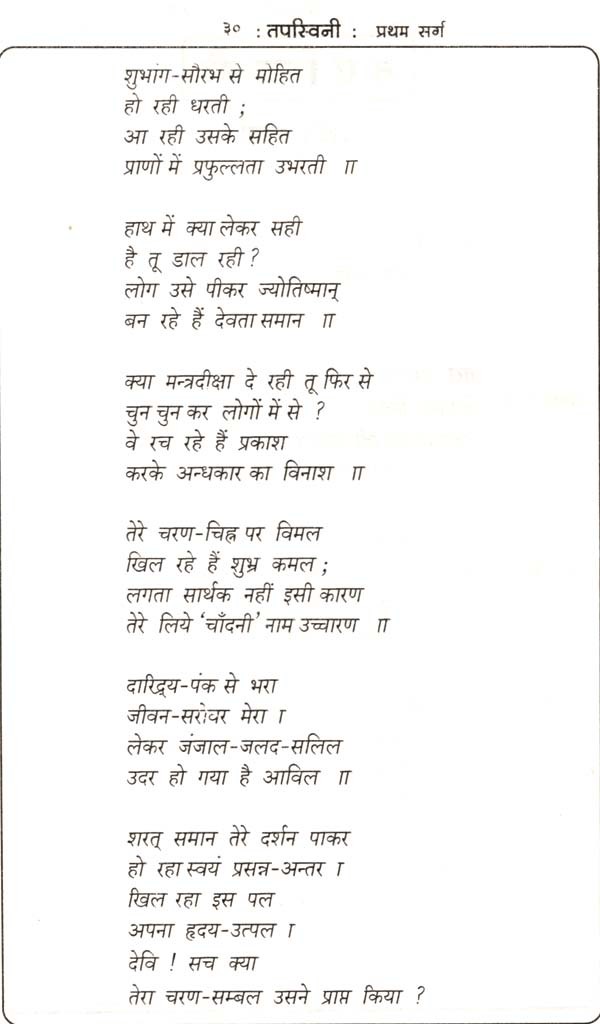 ३० : तपस्विनी : प्रथम सर्ग
शुभांग-सौरभ से मोहित
हो रही धरती ;
आ रही उसके सहित
प्राणों में प्रफुल्लता उभरती ॥
हाथ में क्या लेकर सही
है तू डाल रही ?
लोग उसे पीकर ज्योतिष्मान्
बन रहे हैं देवता समान ॥
क्या मन्त्रदीक्षा दे रही तू फिर से
चुन चुन कर लोगों में से ?
वे रच रहे हैं प्रकाश
करके अन्धकार का विनाश ॥
तेरे चरण-चिह्न पर विमल
खिल रहे हैं शुभ्र कमल ;
लगता सार्थक नहीं इसी कारण
तेरे लिये ‘चाँदनी’ नाम उच्चारण ॥
दारिद्र्य-पंक से भरा
जीवन-सरोवर मेरा ।
लेकर जंजाल-जलद-सलिल
उदर हो गया है आविल ॥
शरत् समान तेरे दर्शन पाकर
हो रहा स्वयं प्रसन्न-अन्तर ।
खिल रहा इस पल
अपना हृदय-उत्पल ।
देवि ! सच क्या
तेरा चरण-सम्बल उसने प्राप्त किया ?